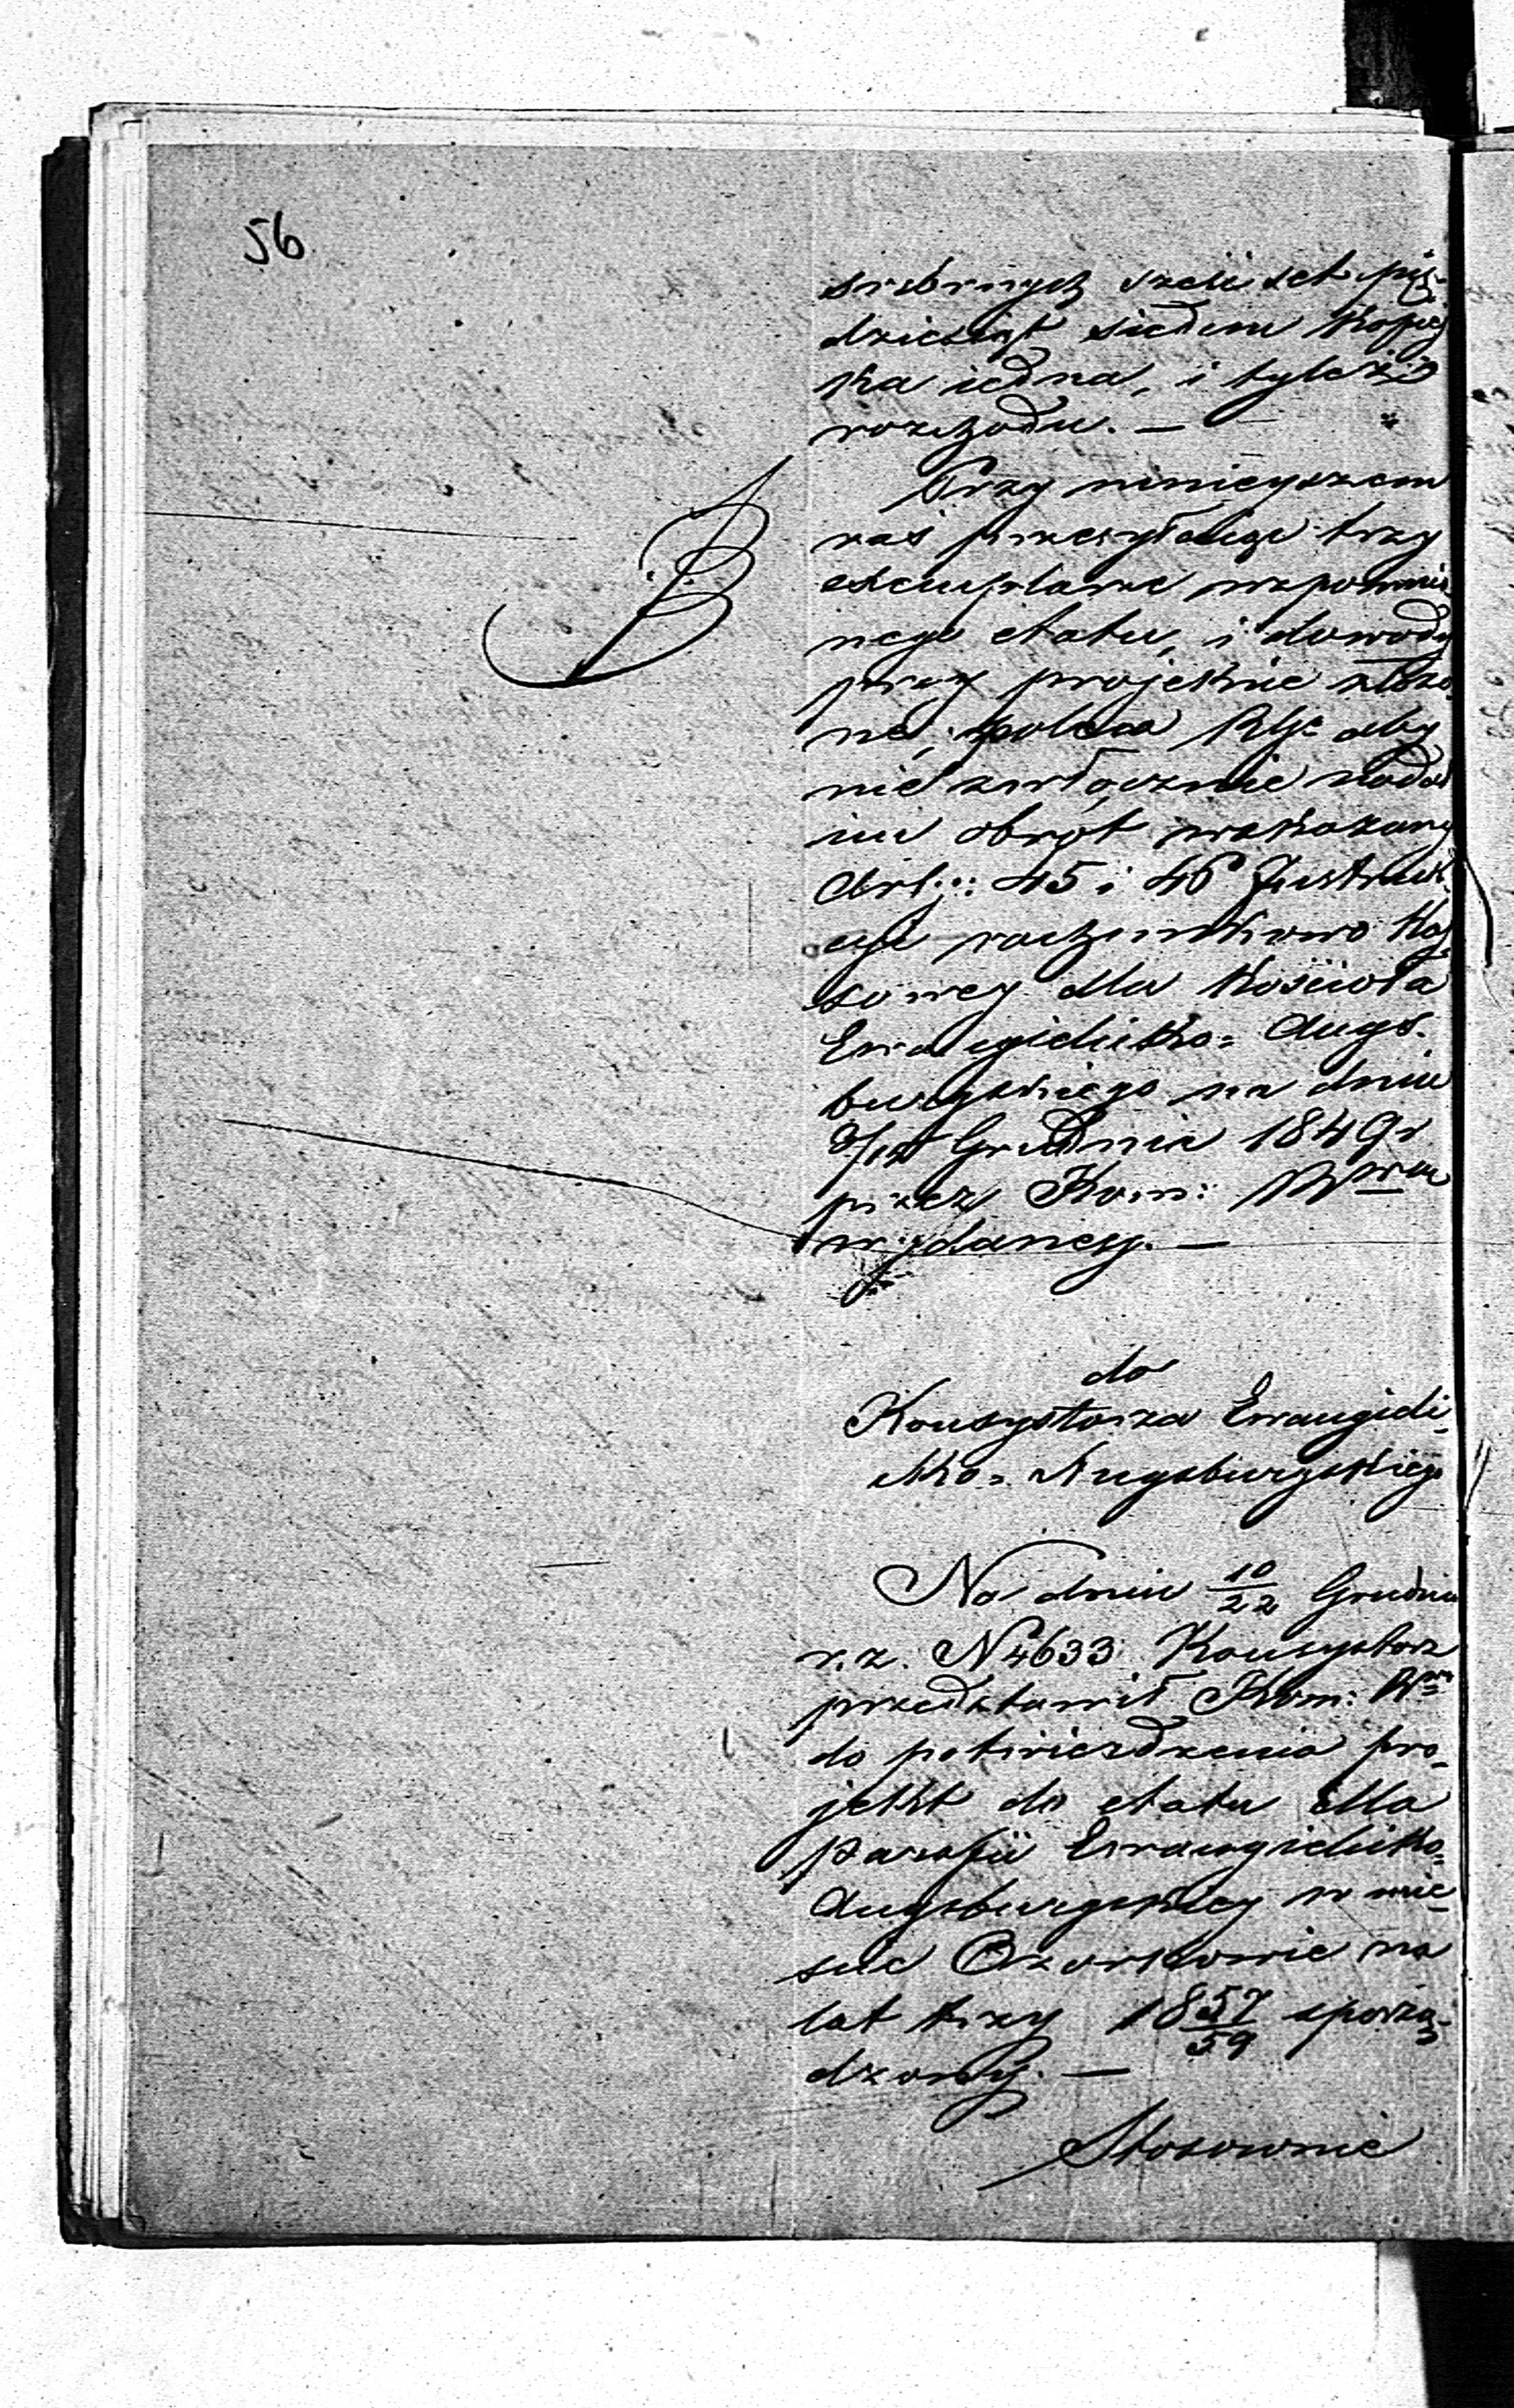 56
srebrnych sześćset pię-
dziesiąt siedem kopiej
ka iedna, i tyleż
rozchodu. —
Przy ninieyszem
zaś przesyłaiąc trzy
exemplarze wspomnio
nego etatu, i dowody
przy projekcie złożo
ne, poleca aby
niezwłocznie nadał
im obrót wskazany
Art:: 45 i 46 Instruk-
cyi rachunkowo Kas
sowey dla Kościoła
Ewangielicko= Augs-
burgskiego na dniu
2/14 Grudnia 1849 r
przez Kom: Rwą
wydaney. —
do
Konsystorza Ewangieli-
cko= Augsburgskiego
Na dniu 10/22 Grudnia
r. z. N 4633 Konsystorz
przedstawił Kom: Rwey
do potwierdzenia pro-
jekt do etatu dla
Parafii Ewangielicko=
Augsburgskiey w mie-
ście Ozorkowie na
lat trzy 1857/59 sporzą-
dzony. —
Stosownie